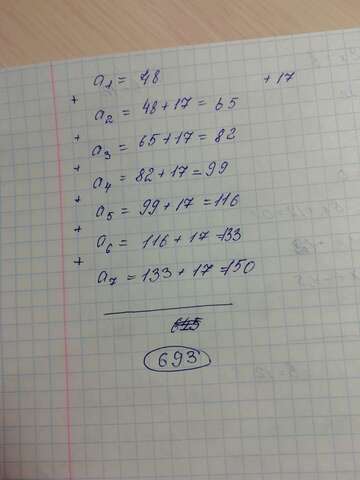 a1 = 48 +17
+
a2 = 48+17 = 65
+
a3 = 65+17 = 82
+
a4 = 82+17 = 99
+
a5 = 99+17 = 116
+
a6 = 116+17 = 133
+
a7 = 133+17 = 150
693